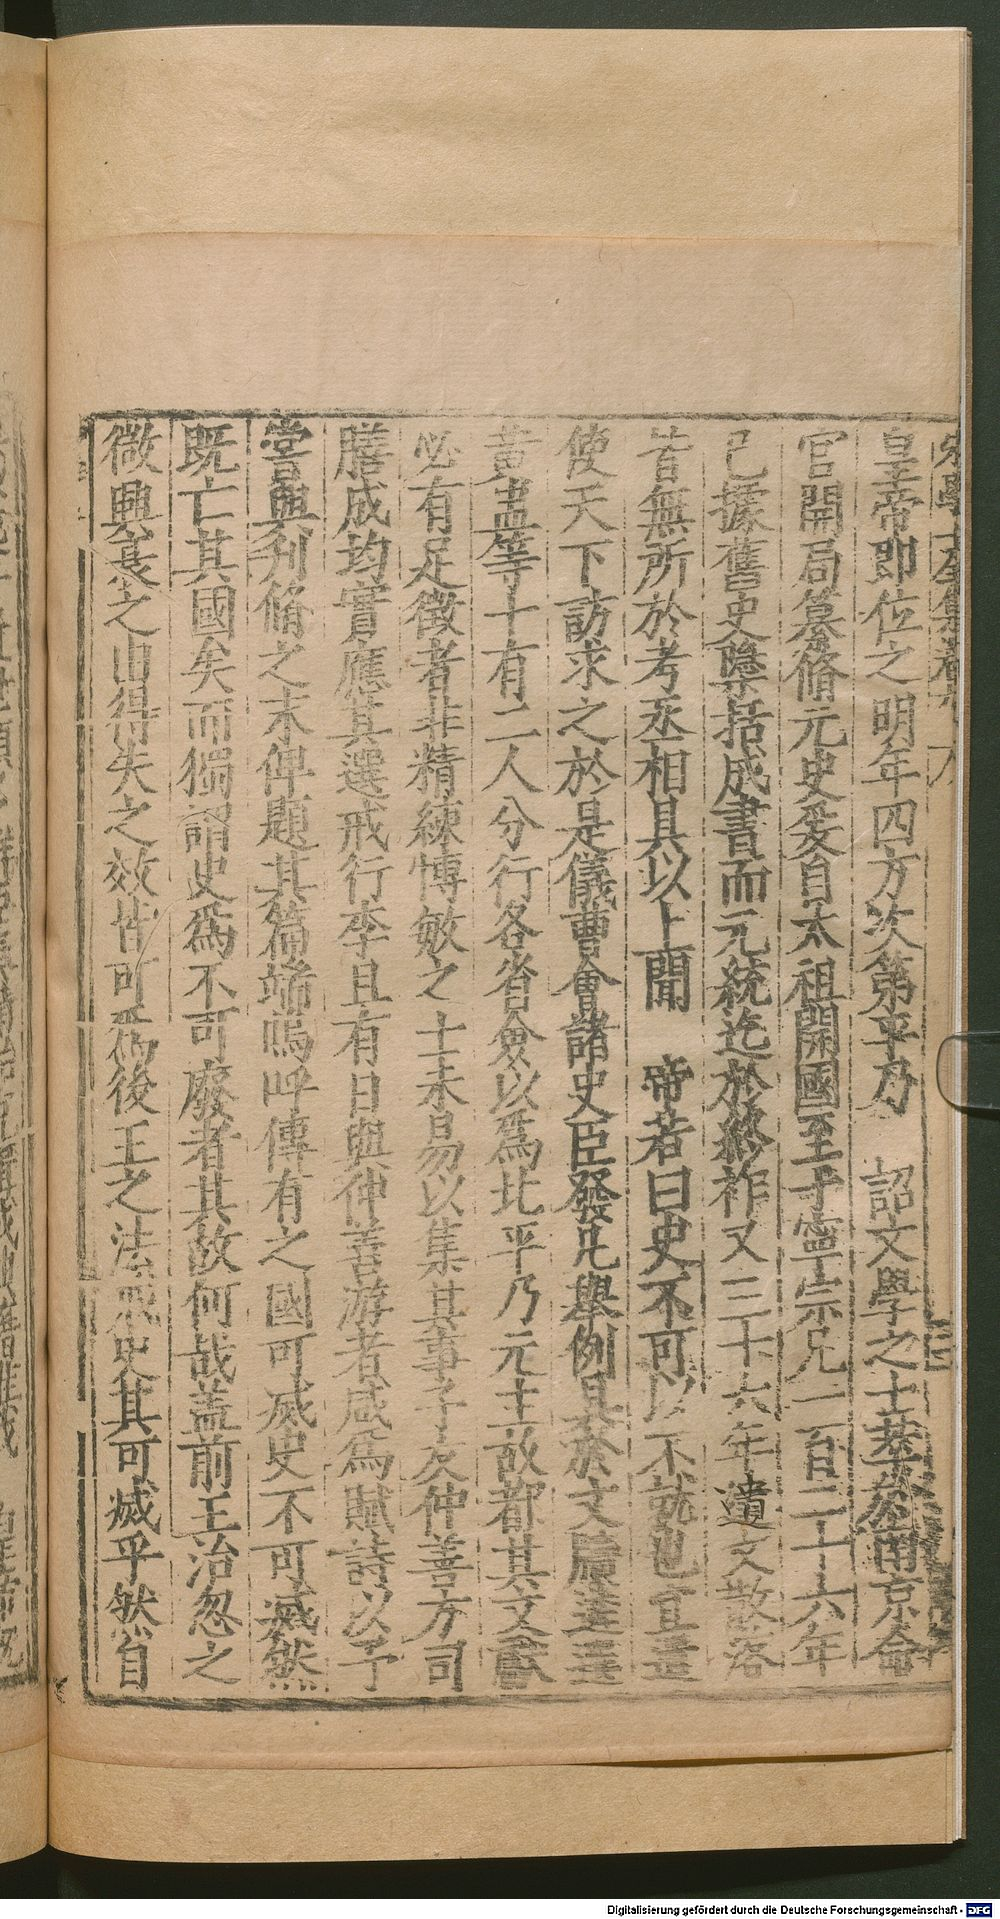 皇帝即位之明年四方次第平乃　詔文學之士萃於南京命
官開局纂脩元史爰自太祖開國至于寧宗凡一百二十六年
已據舊史隱括成書而元統迄於終祚又三十六年遺文散落
皆無所於考丞相具以上聞　帝若曰史不可以不就也宜遣
使天下訪求之於是儀曹會諸史臣發凡舉例具於文牘遣
黃盅等十有二人分行各省僉以爲北平乃元主故都其文獻
必有足徵者非精練博敏之士未易以集其事予友仲善方司
膳成均實應其選戒行李且有日與仲善游者咸爲賦詩以予
嘗與刋脩之末俾題其篇端嗚呼傳有之國可滅史不可滅然
既亡其國矣而獨謂史爲不可廢者其故何哉蓋前王治忽之
微興衰之由得失之效皆可爲後王之法戒史其可滅乎然自
Digitalisierung gefördert durch die Deutsche Forschungsgemeinschaft - DFG